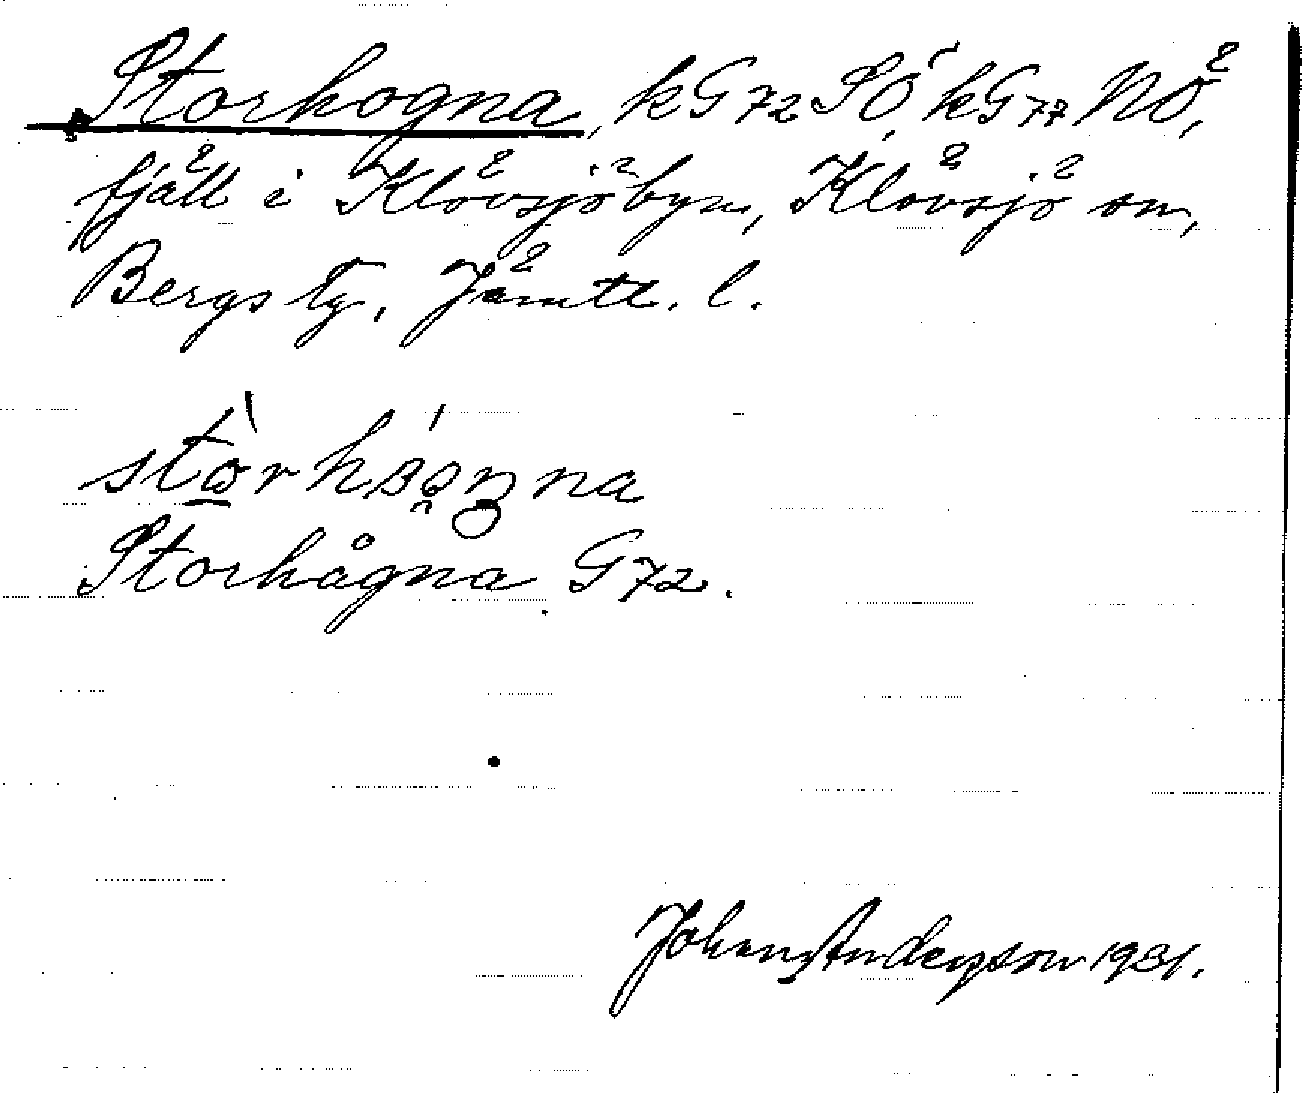 Storhogna, kG72 SÖ, kG77 NÖ,
fjäll i Klövsjöbyn, Klövsjö sn,
Bergs tg, Jämtl. l.
Storhågna G72.
Johan Anderson 1931.